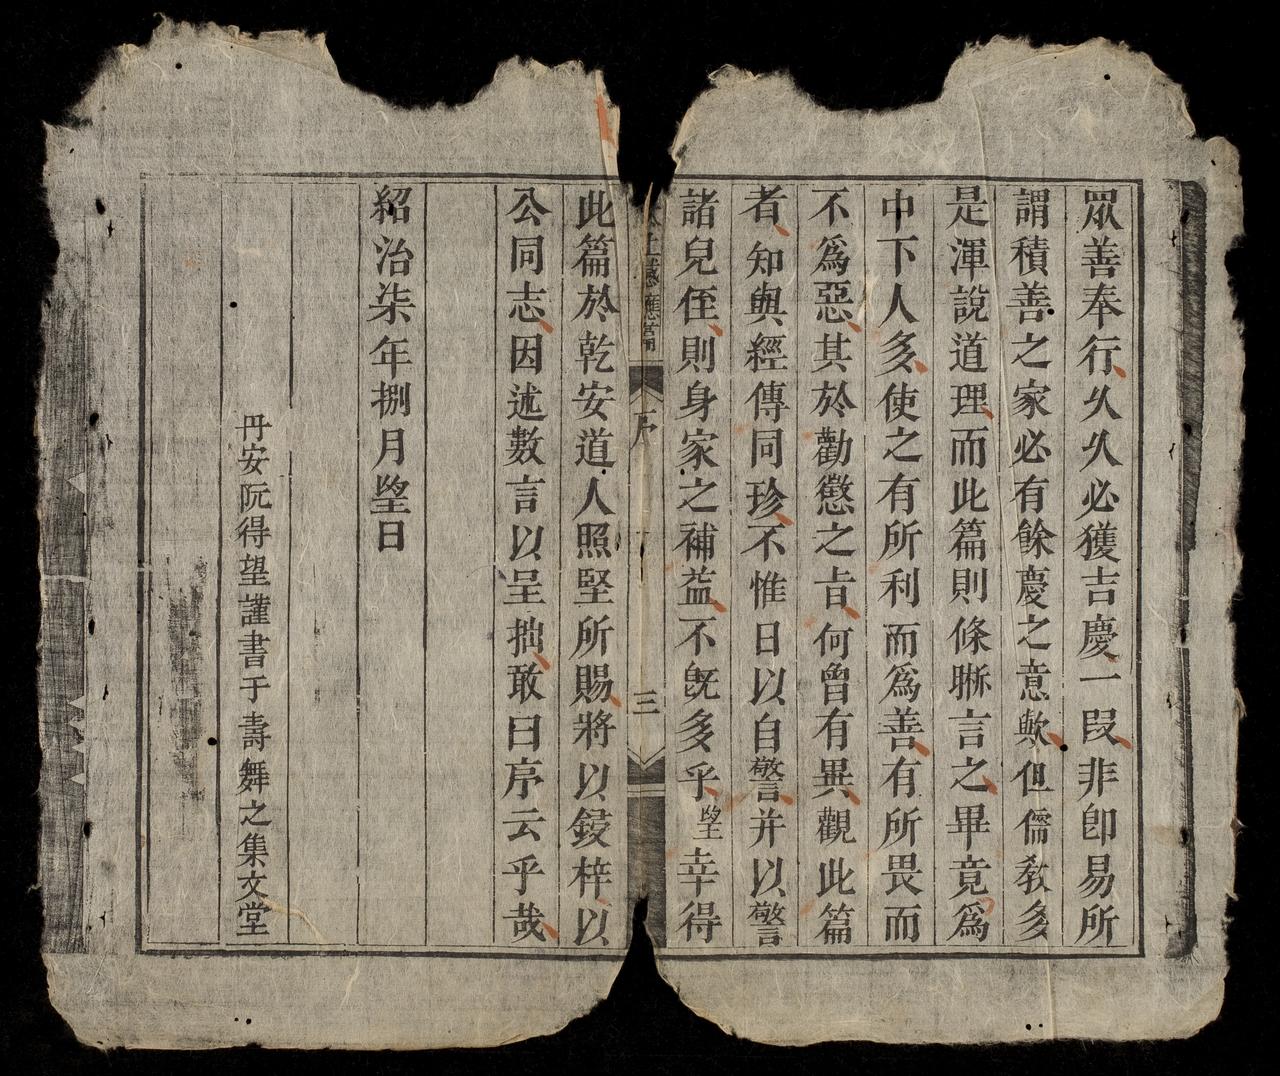 眾善奉行久久必獲吉慶一段非卽易所
謂積善之家必有餘慶之意歟但儒敎多
是渾說道理而此篇則條晰言之畢竟爲
中下人多使之有所利而爲善有所畏而
不爲惡其於勸懲之旨何曾有異觀此篇
者知與經傳同珍不惟日以自警并以警
諸兒侄則身家之補益不旣多乎望幸得
上感應篇
序
三
此篇於乾安道人照堅所賜將以鋟梓以
公同志因述數言以呈拙敢曰序云乎哉
紹治柒年捌月望日
丹安阮得望謹書于壽舞之集文堂